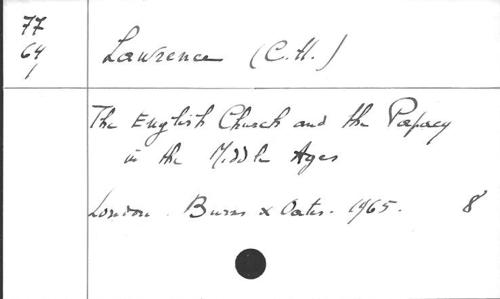 77
64
1
Lawrence (C.H.)
The English Church and the Papacy
in the Middle Ages
London. Burns & Oates. 1965. 8°